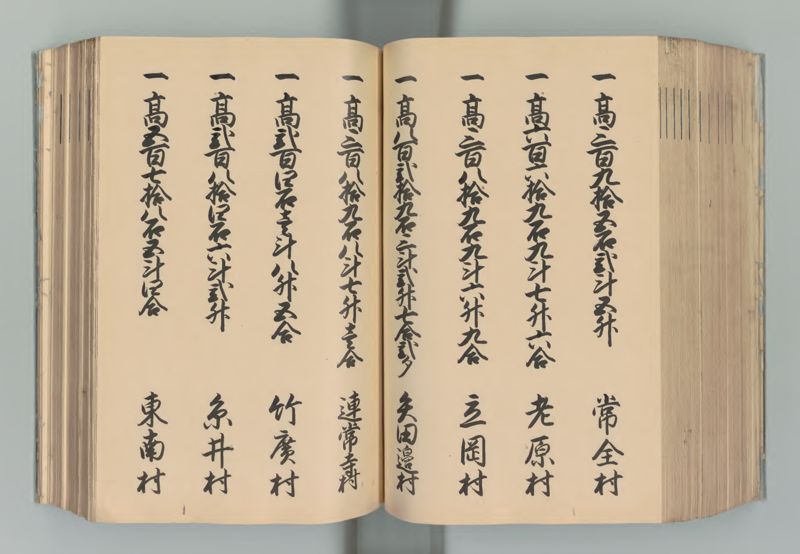 一高三百九拾五石弐斗五升 常全村
一高六百六拾九石九斗七升六合 老原村
一高三百八拾九石九斗六升九合 立岡村
一高八百弐拾九石三斗弐升七合弐夕 矢田邊村
一高三百八拾九石八斗七升壱合 連常寺村
一高弐百四石壱斗八升五合 竹廣村
一高弐百八拾四石六斗弐升 糸井村
一高五百七拾八石五斗四合 東南村